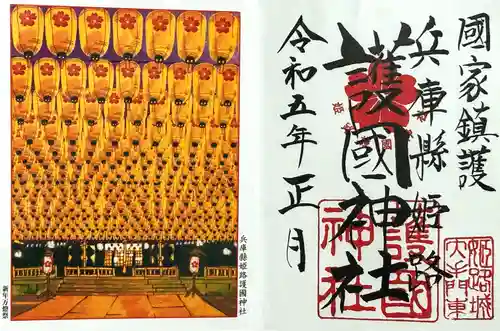 兵庫縣姫路護國神社
新年万燈祭
國家鎮護
兵庫縣姫路
護國神社
令和五年正月
護國
神社
姫路城
大手門東